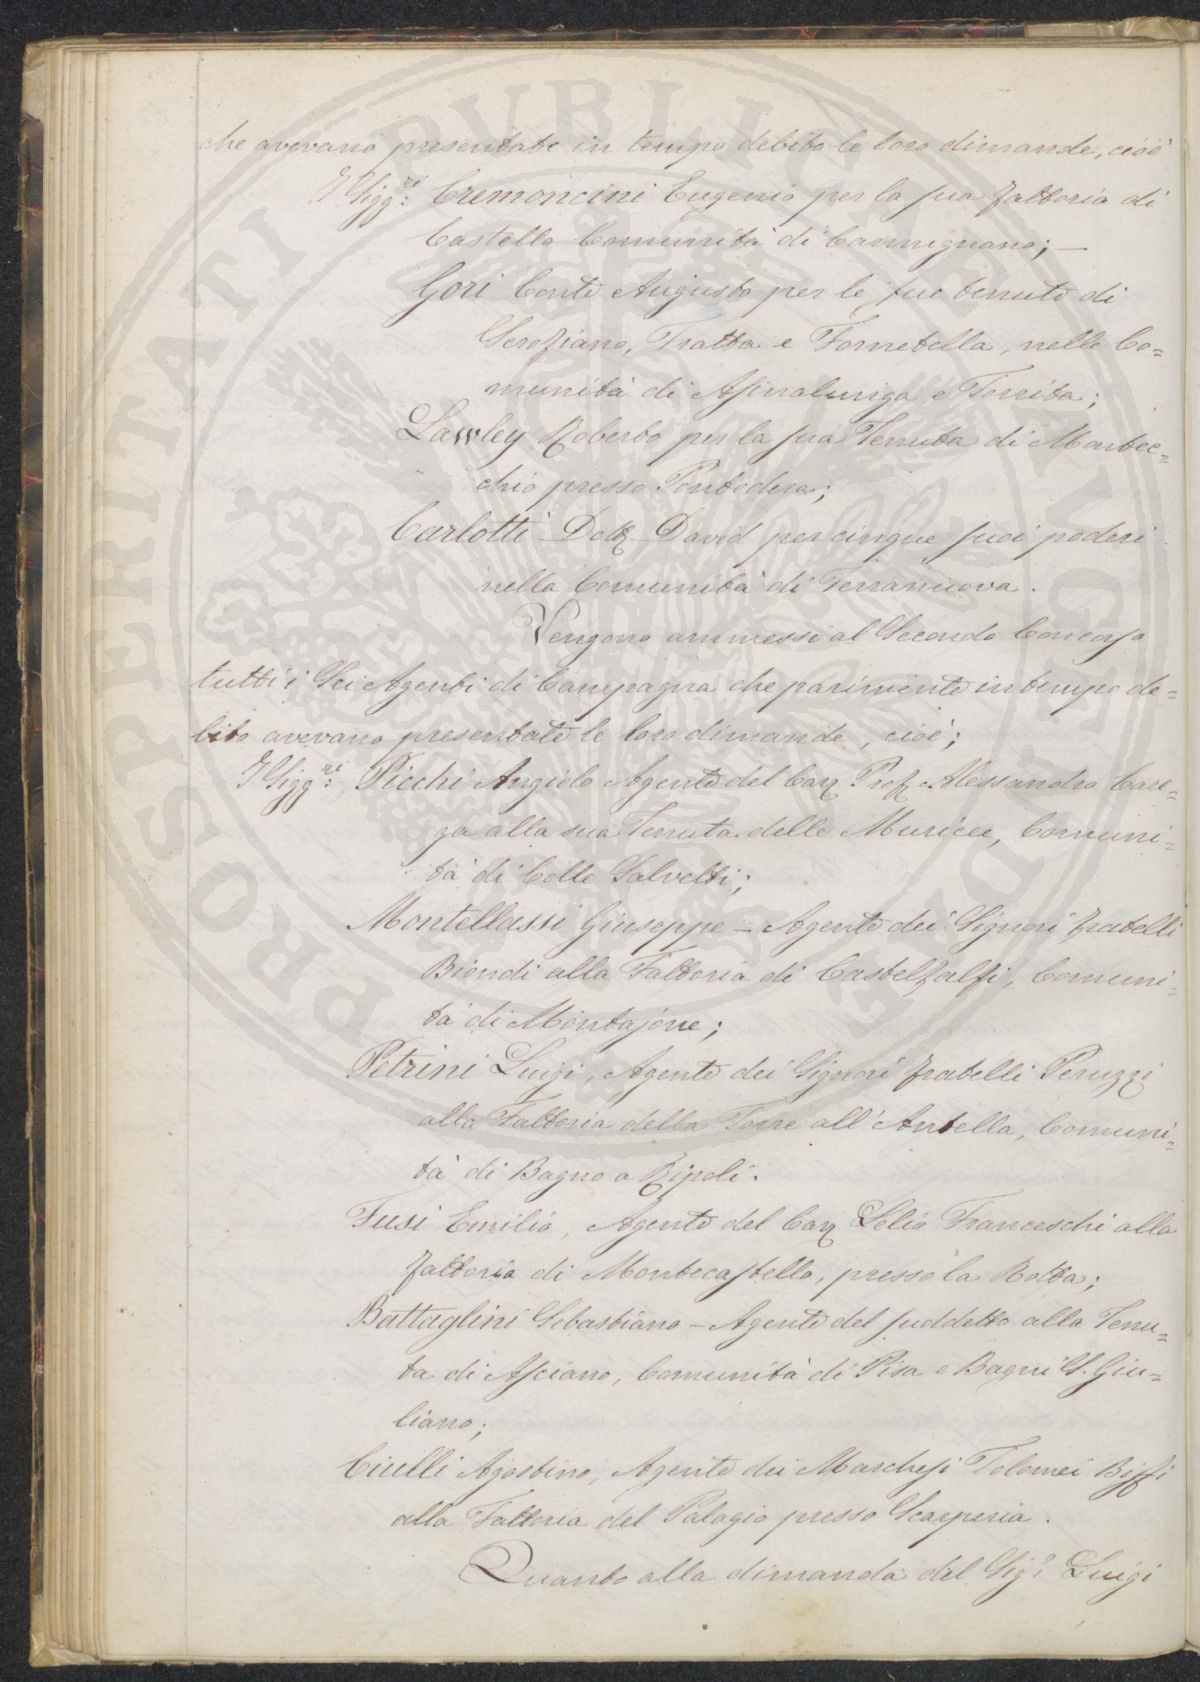 che avevano presentate in tempo debito le loro dimande, cioè
I Sigg.ri Cremoncini Eugenio per la sua fattoria di
Castello Comunità di Carmignano; —
Gori Conte Augusto per le sue tenute di
Scrofiano, Tratta e Fornetella, nelle Co=
munità di Asinalunga e Torrita;
Lawley Roberto per la sua Tenuta di Montec=
chio presso Pontedera;
Carlotti Dott. David per cinque suoi poderi
nella Comunità di Terranuova.
Vengono ammessi al Secondo Concorso
tutti i Sei Agenti di Campagna che parimente in tempo de=
bito avevano presentate le loro dimande, cioè;
I Sigg.ri Picchi Angiolo Agente del Cav. Prof. Alessandro Care=
ga alla sua Tenuta delle Muricce, Comuni=
tà di Colle Salvetti;
Montellassi Giuseppe – Agente dei Signori fratelli
Biondi alla Fattoria di Castelfalfi, Comuni=
tà di Montajone;
Petrini Luigi, Agente dei Signori fratelli Peruzzi
alla Fattoria della Torre all'Antella, Comuni=
tà di Bagno a Ripoli.
Fusi Emilio, Agente del Cav. Lelio Franceschi alla
fattoria di Montecastello, presso la Rotta;
Battaglini Sebastiano – Agente del suddetto alla Tenu=
ta di Asciano, Comunità di Pisa e Bagni S. Giu=
liano;
Ciulli Agostino, Agente dei Marchesi Tolomei Biffi
alla Fattoria del Palagio presso Scarperia.
Quanto alla dimanda del Sig.r Luigi
PROSPERITATI PUBLICAE AUGENDAE